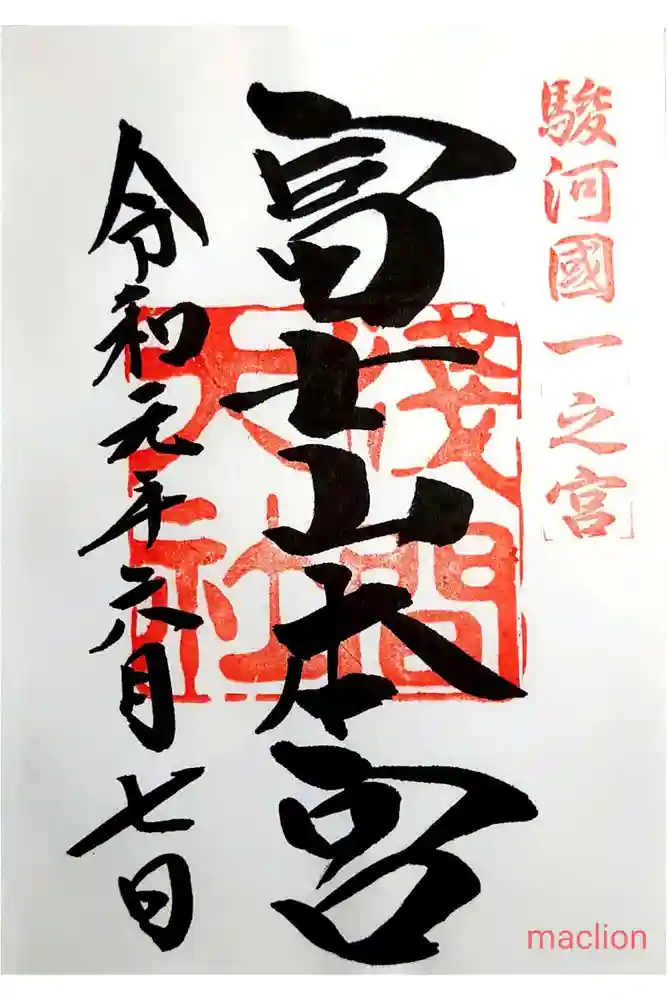 駿河國一之宮
富士山本宮
淺間
大社
令和元年六月七日
maclion